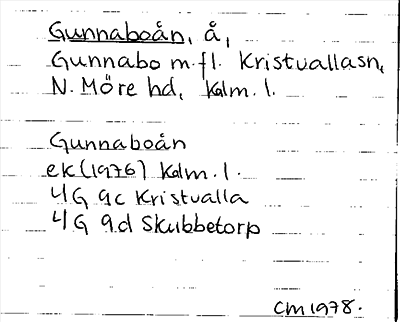 Gunnaboån, å,
Gunnabo m.fl. Kristvallasn,
N. Möre hd, Kalm. l.
Gunnaboån
ek (1976) Kalm. l.
4G 9c Kristvalla
4G 9d Skubbetorp
CM 1978.